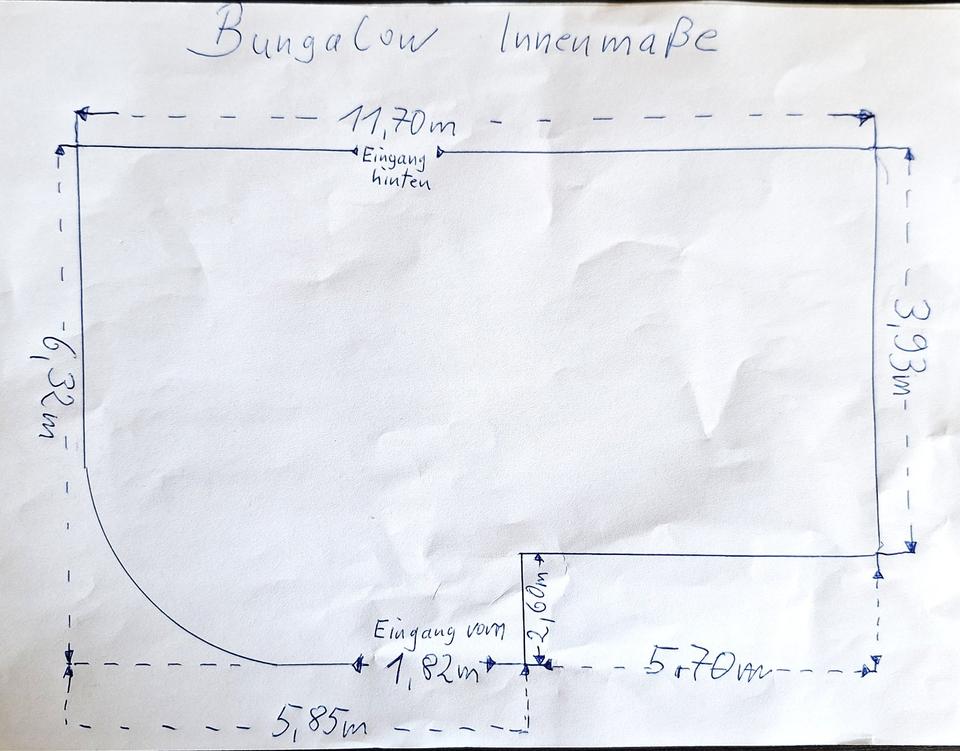 Bungalow Innenmaße
11,70m
Eingang
hinten
6,32m
3,93m
2,60m
Eingang vorn
1,82m
5,70m
5,85m